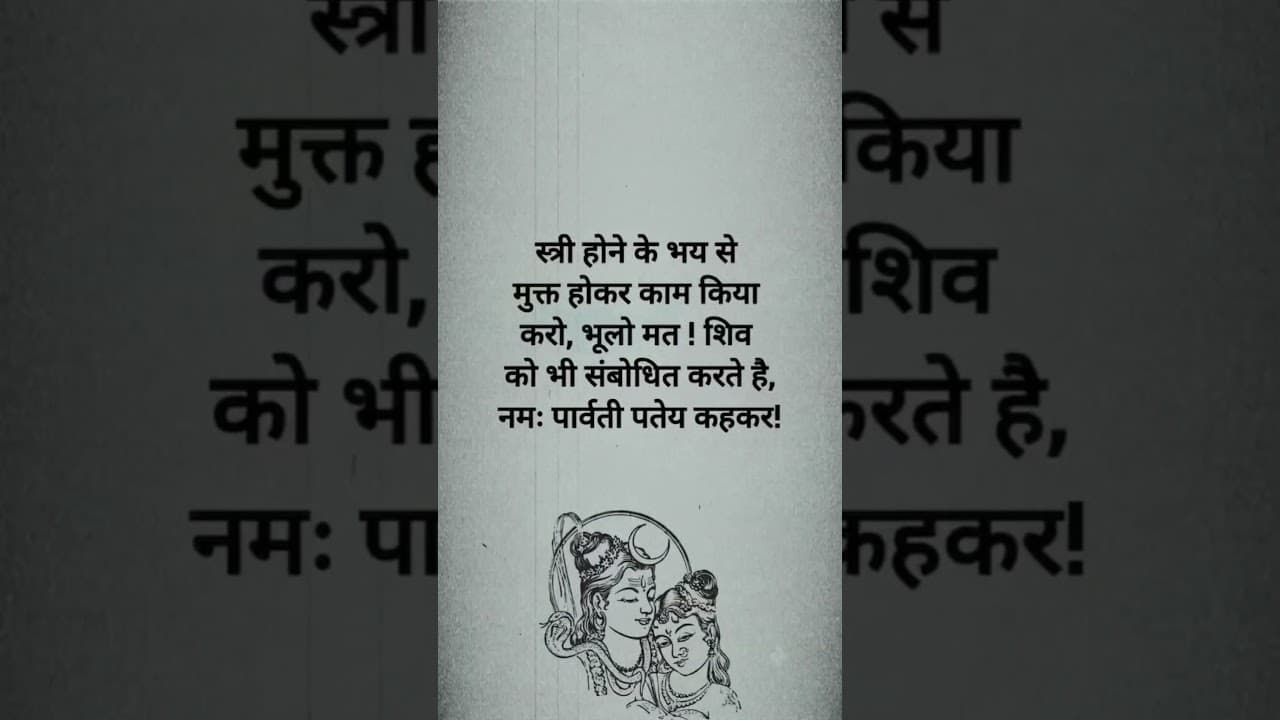 स्त्री होने के भय से
मुक्त होकर काम किया
करो, भूलो मत ! शिव
को भी संबोधित करते है,
नमः पार्वती पतेय कहकर!